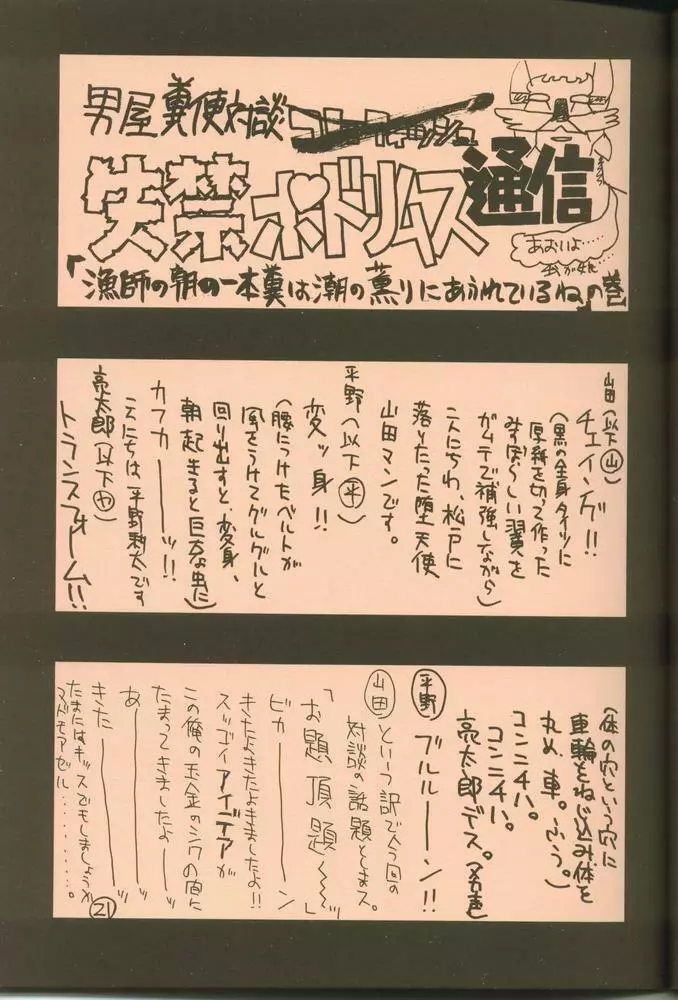 男屋糞便対談
失禁ボドリムス通信
あおいよ……
我が娘…
「漁師の朝の一本糞は潮の薫りにあふれているね」の巻
山田(以下山)
チェイング!!
(黒の全身タイツに
厚紙を切って作った
みすぼらしい翼を
ガムテで補強しながら)
こんにちわ、松戸に
落りたった堕天使
山田マンです。
平野(以下平)
変ッ身!!
(腰につけたベルトが
風をうけてグルグルと
回り出すと、変身、
朝起きると巨大な虫に)
カフカーーッ!!
こんにちは、平野耕太です
亮太郎(以下ヤ)
トランスフォーム!!
(体の穴という穴に
車輪をねじ込み体を
丸め、車。ふう。)
コンニチハ。
コンニチハ。
亮太郎デス。(男声)
平野 ブルルーーン!!
山田 という訳で今回の
対談の話題としまス。
「お題頂題〜〜」
ピカーーーン
きたよきたよきましたよ!!
スッゴイアイデアが
この俺の玉金のシワの間に
たまってきましたよーーッ
あーーーーーッ
きたーーーーーッ
たまにはキッスでもしましょうか
マドモアゼル……………。
21